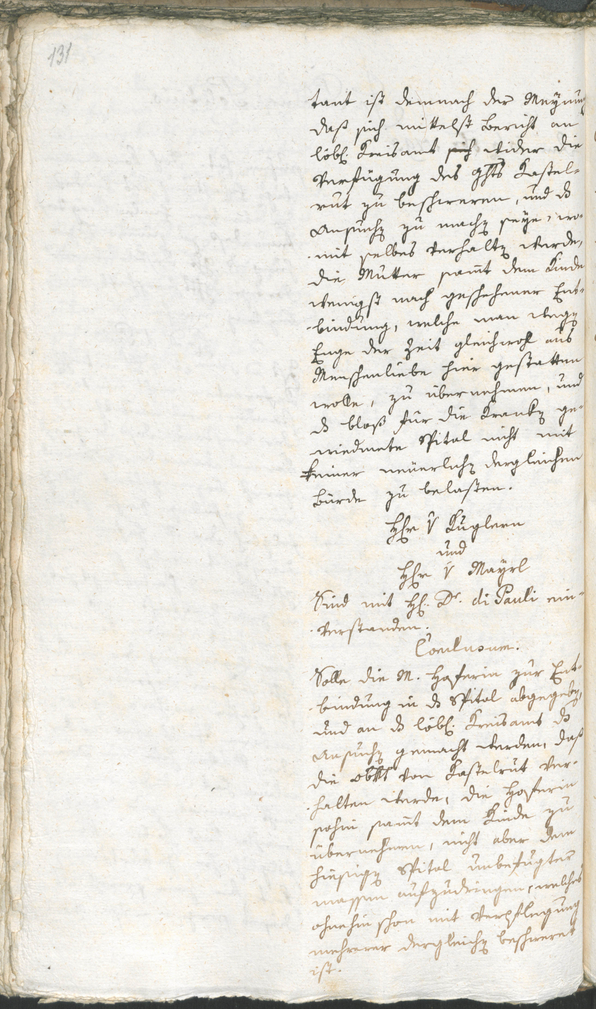 131
tant ist demnach der Meÿnung
daß sich mittelst Bericht an
löbl. Kreisamt sich wider die
Verfügung des Ghts Kastel-
rut zu beschweren, und ds
Ansuchen zu machen seÿe, wo-
mit selbes verhalten werde,
die Mutter samt dem Kinde
wenigst nach geschehener Ent-
bindung, welche man wegen
Enge der Zeit gleichwohl aus
Menschenliebe hier gestatten
wolle, zu übernehmen, und
ds bloß für die Kranken ge-
wiedmete Spital nicht mit
keiner neuerlichen dergleichen
Bürde zu belasten.
Hhr v Kuglern
und
Hhr v Maÿrl
Sind mit H. Dr. di Pauli ein-
verstanden.
Conclusum.
Solle die M. Hoferin zur Ent-
bindung in ds Spital abgegeben,
und an ds löbl. Kreisamt ds
Ansuchen gemacht werden, daß
die obkt von Kastelrut ver-
halten werde, die Hoferin
sohin samt dem Kinde zu
übernehmen, nicht aber dem
hiesigen Spital unbefugter
massen aufzudringen, welches
ohnehin schon mit Verpflegung
mehrerer dergleichen beschweret
ist.